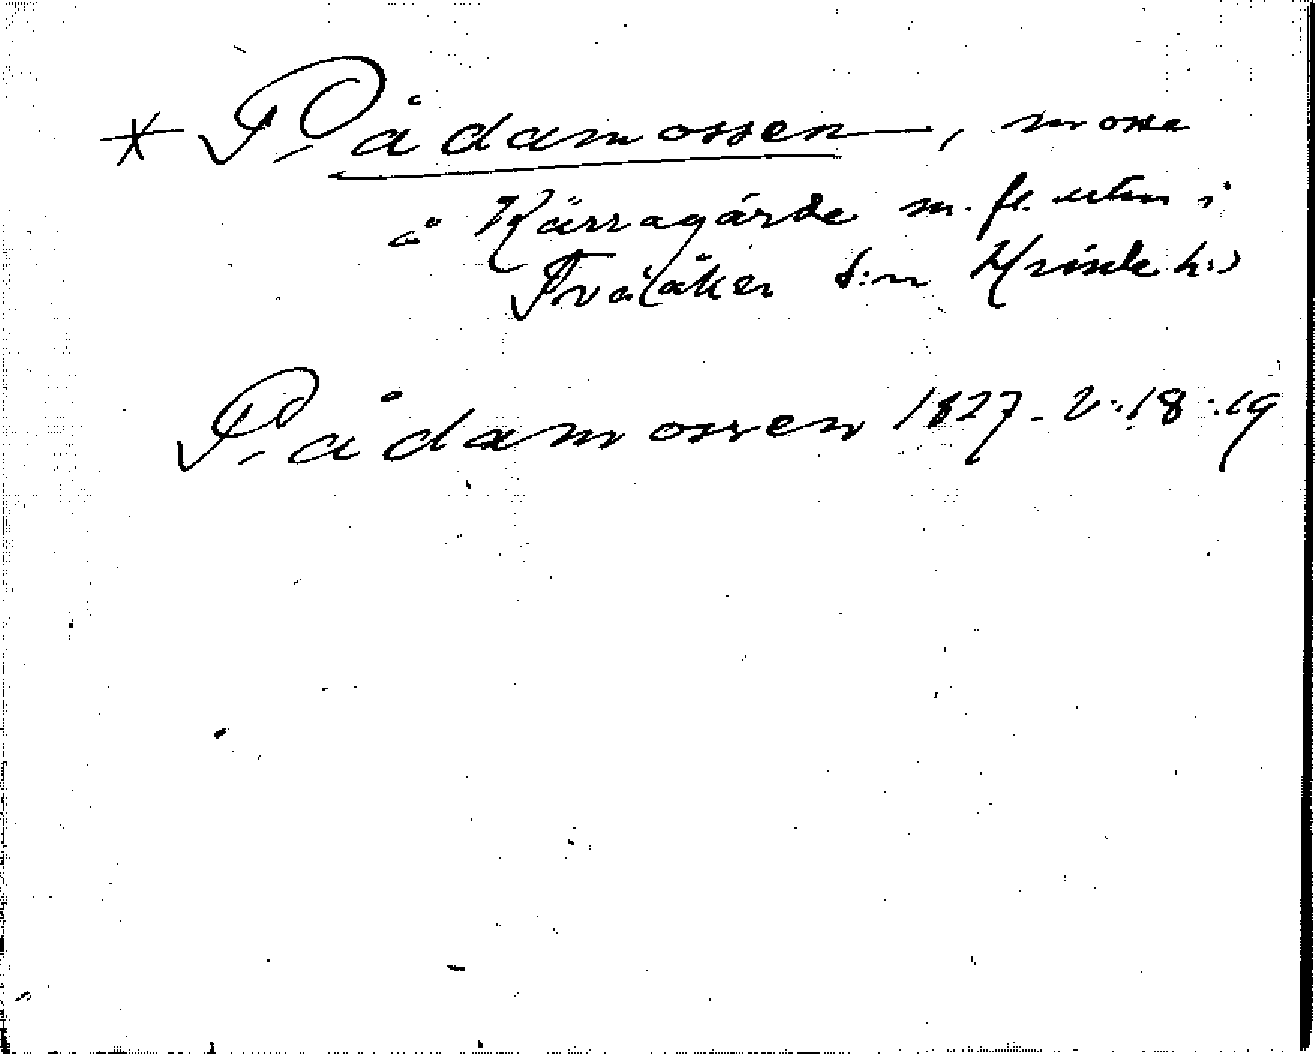 * Pådamossen, mosse
å Kärragärde m. fl. i
Tvååker s:n Himle h:d
Pådamossen 1827. V:18:19